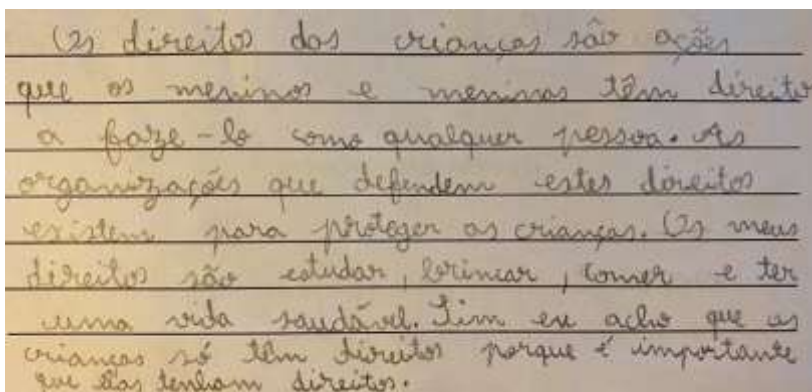 Os direitos das crianças são ações
que os meninos e meninas têm direito
a faze-lo como qualquer pessoa. As
organizações que defendem estes direitos
existem para proteger as crianças. Os meus
direitos são estudar, brincar, comer e ter
uma vida saudável. Sim eu acho que as
crianças só têm direitos porque é importante
que elas tenham direitos.